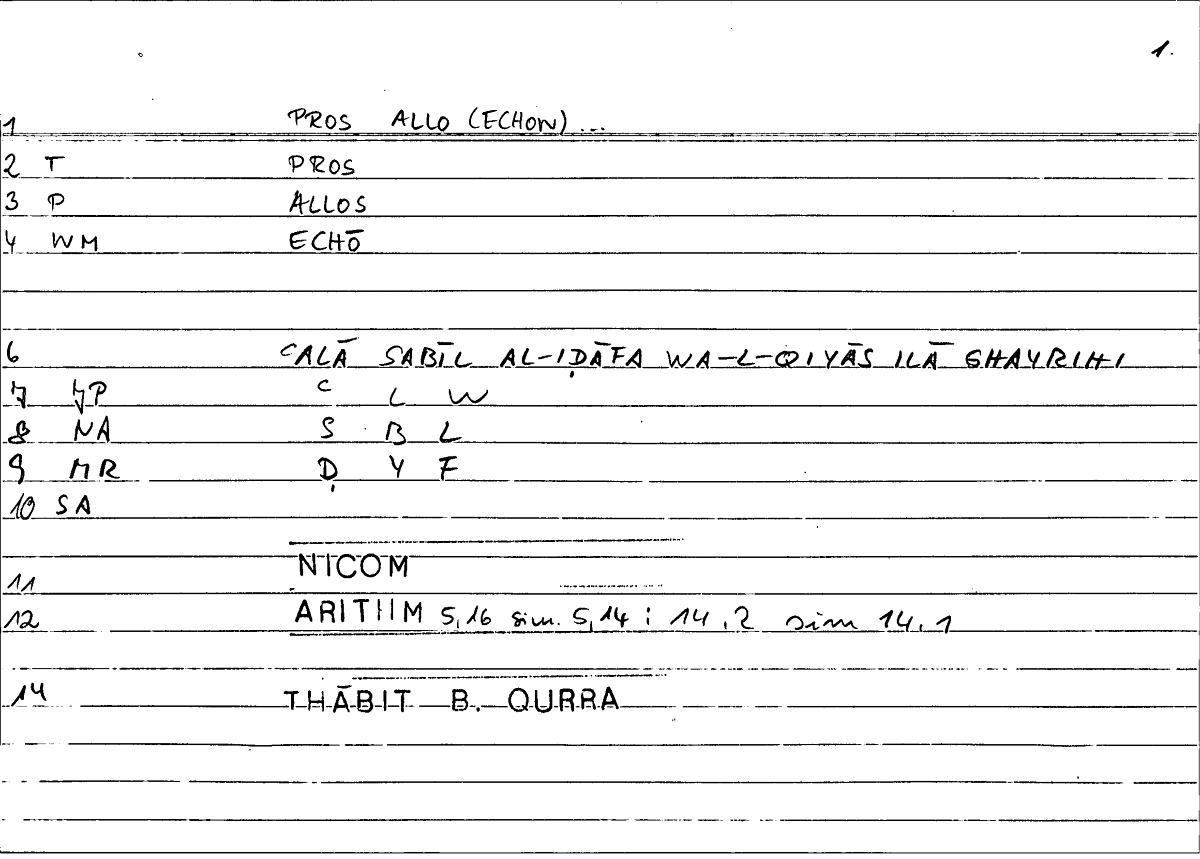 1.
1 PROS ALLO (ECHON)...
2 T PROS
3 P ALLOS
4 WM ECHŌ
6 ᶜALĀ SABĪL AL-IḌĀFA WA-L-QIYĀS ILĀ GHAYRIHI
7 JP ᶜ L W
8 NA S B L
9 MR Ḍ Y F
10 SA
11 NICOM
12 ARITIIM 5,16 sim. 5,14 ; 14.2 sim 14.1
14 THĀBIT B. QURRA